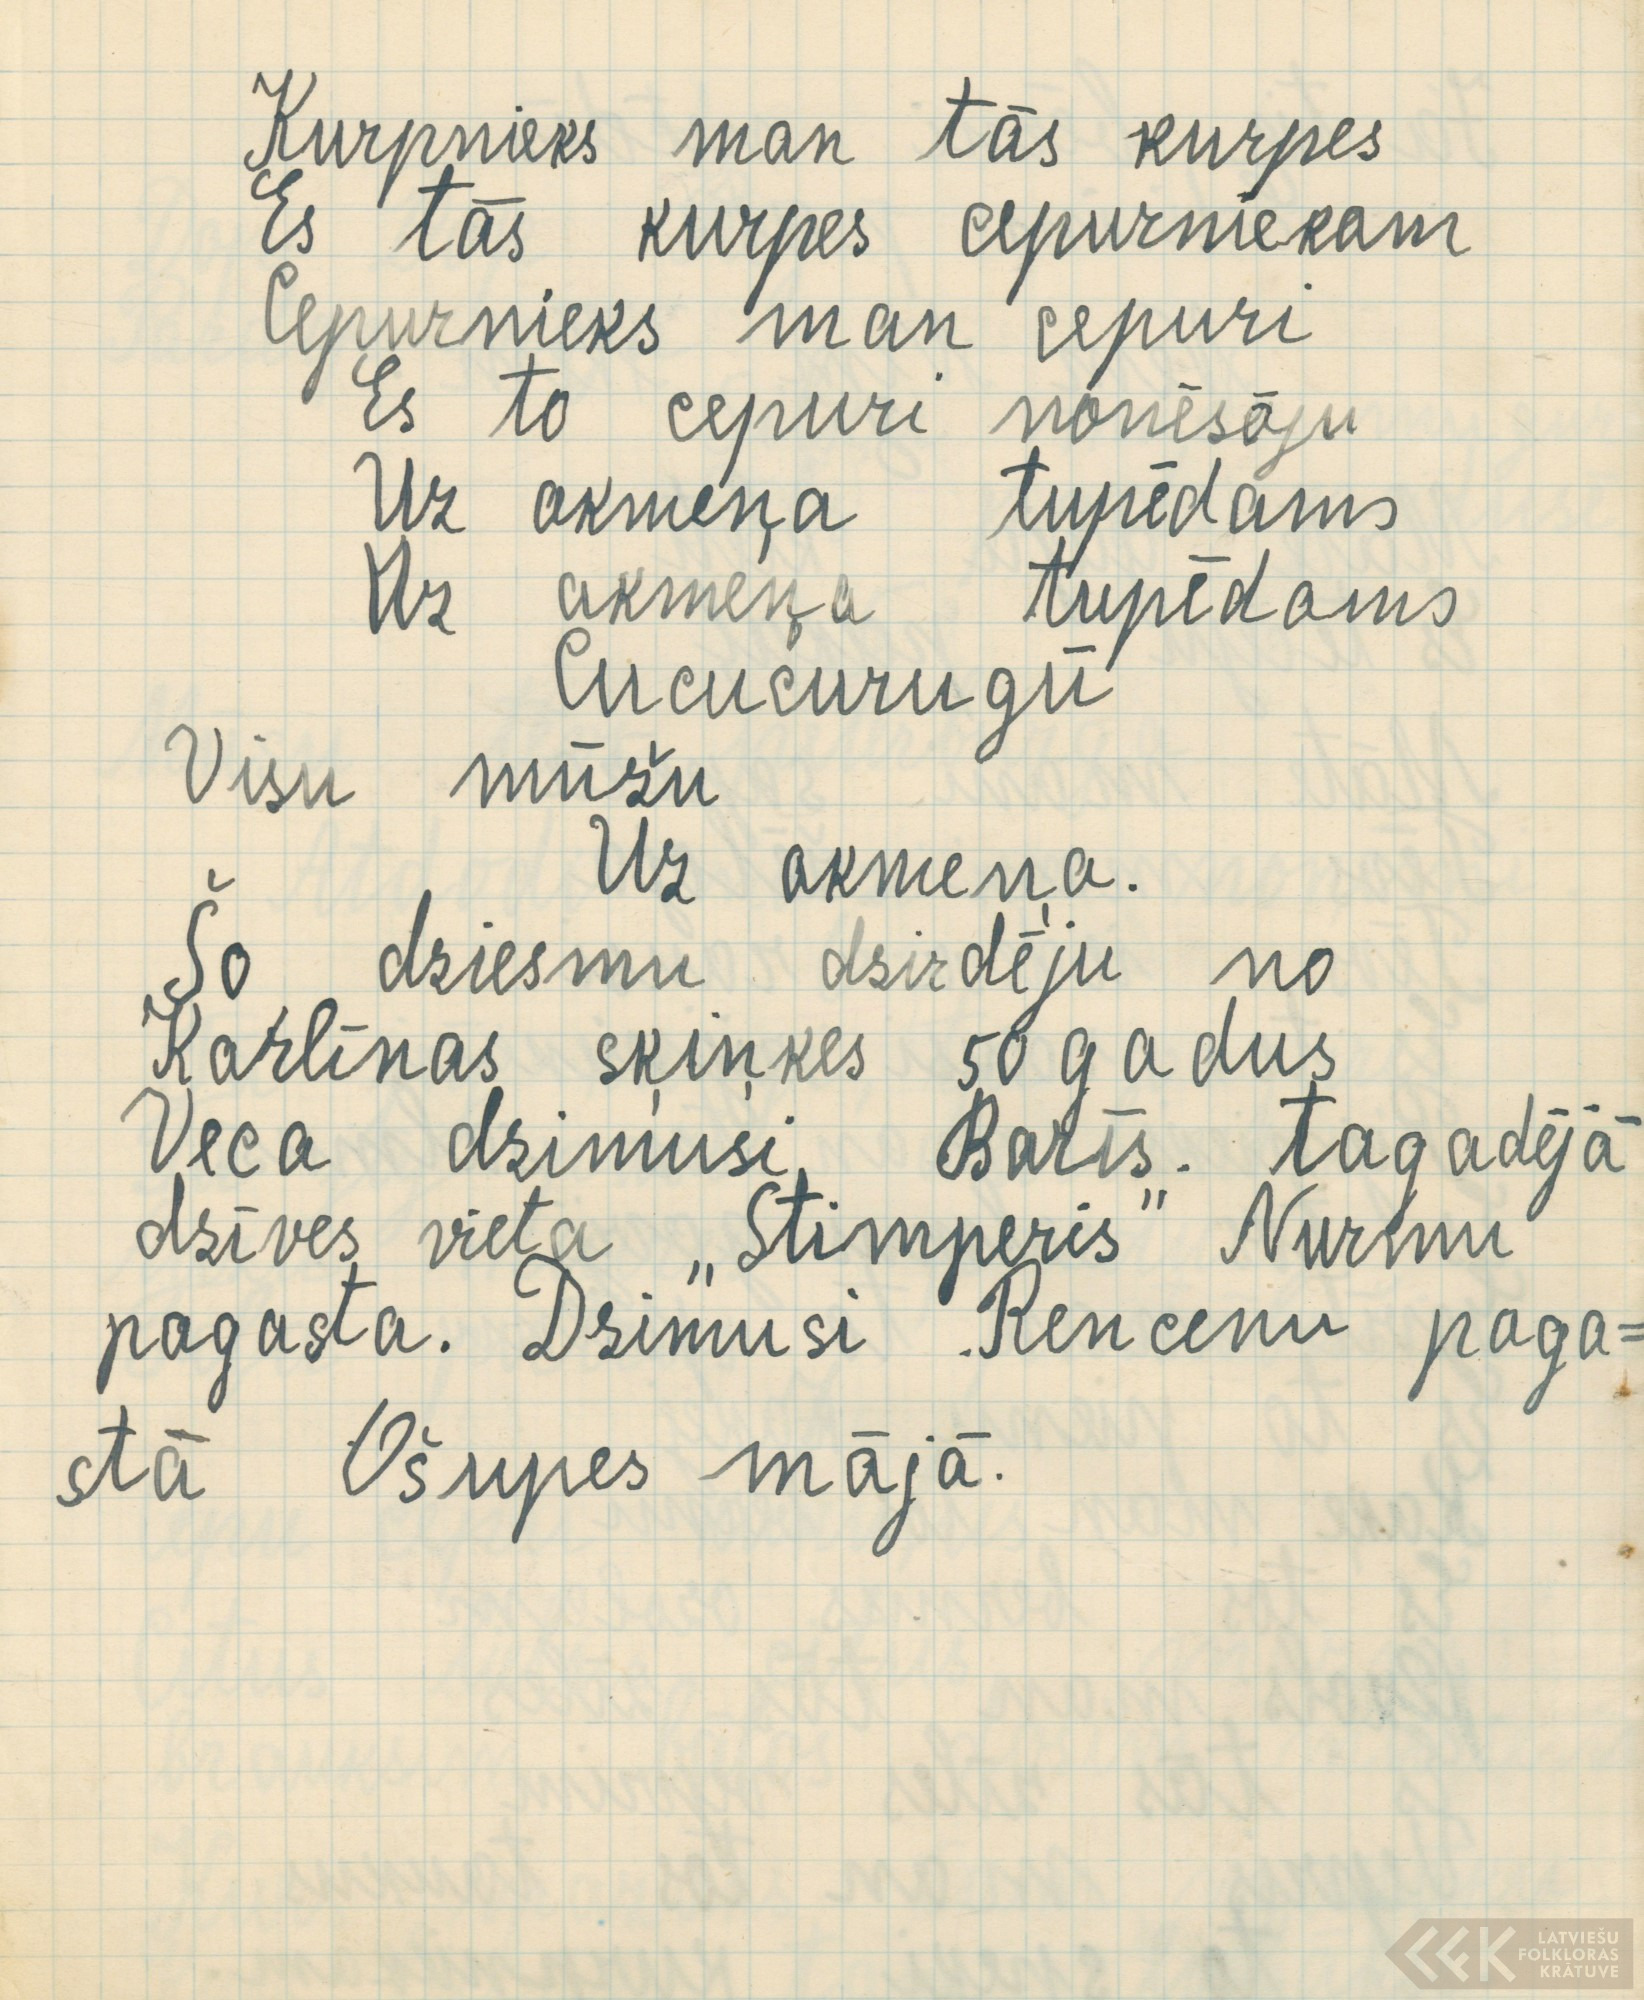 Kurpnieks man tās kurpes
Es tās kurpes cepurniekam
Cepurnieks man cepuri
Es to cepuri nonēsāju
Uz akmeņa tupēdams
Uz akmeņa tupēdams
Cucucurugū
Visu mūžu
Uz akmeņa.
Šo dziesmu dzirdēju no
Karlīnas sķiņķes 50 gadus
Veca dzimusi Barīs. tagadējā
dzīves vieta „Stimperis” Nurmu
pagasta. Dzimusi Rencenu paga=
stā Ošupes mājā.
LATVIEŠU
FOLKLORAS
KRĀTUVE